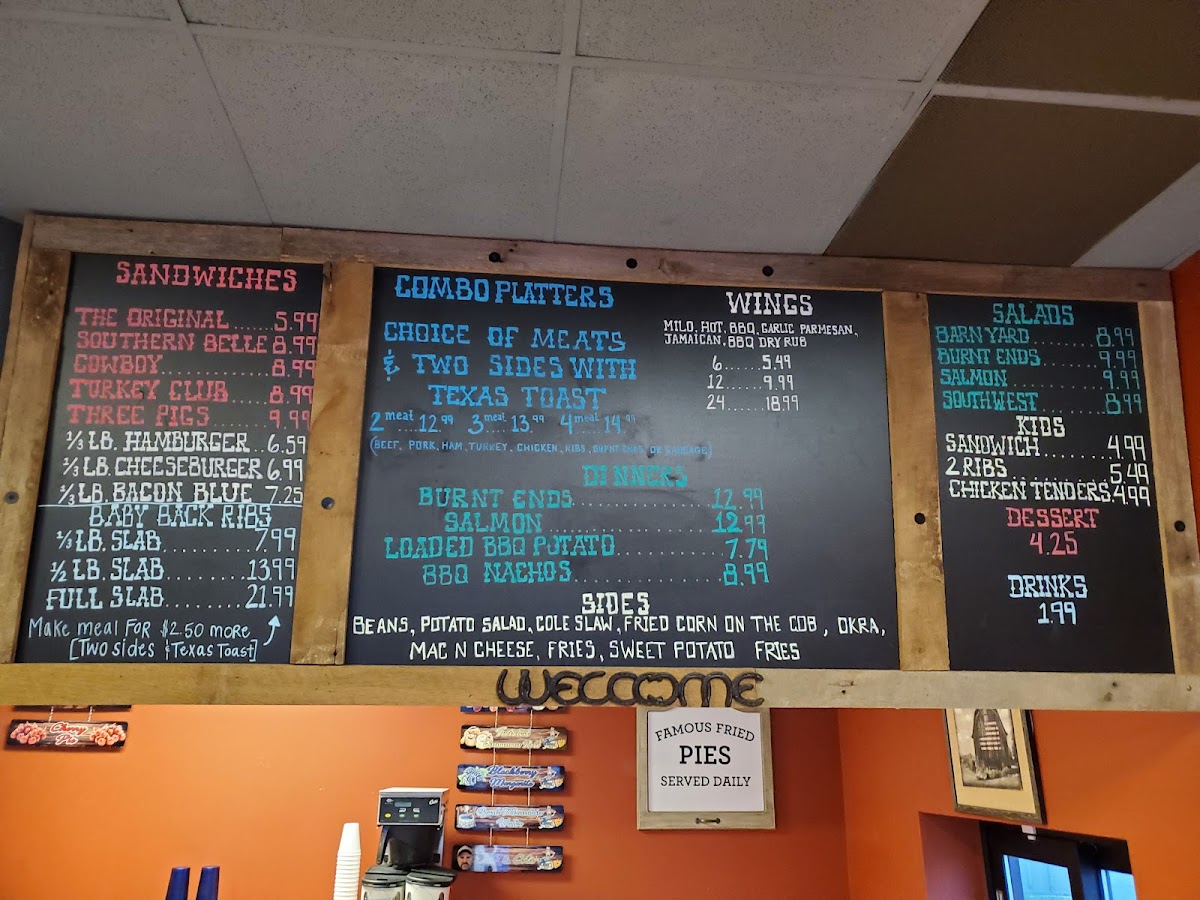 SANDWICHES
THE ORIGINAL......5.99
SOUTHERN BELLE 8.99
COWBOY..........8.99
TURKEY CLUB......8.99
THREE PIGS......9.99
⅓ LB. HAMBURGER..6.59
⅓ LB. CHEESEBURGER 6.99
⅓ LB. BACON BLUE 7.25
BABY BACK RIBS
⅓ LB. SLAB..........7.99
½ LB. SLAB.........13.99
FULL SLAB.........21.99
Make meal FOR $2.50 more
[Two sides & Texas Toast]
COMBO PLATTERS
CHOICE OF MEATS
& TWO SIDES WITH
TEXAS TOAST
2 meat 12.99 3 meat 13.99 4 meat 14.99
(BEEF, PORK, HAM, TURKEY, CHICKEN, RIBS, BURNT ENDS, OR SAUSAGE)
WINGS
MILD, HOT, BBQ, GARLIC PARMESAN,
JAMAICAN, BBQ DRY RUB
6......5.49
12.....9.99
24......18.99
DINNERS
BURNT ENDS...............12.99
SALMON...............12.99
LOADED BBQ POTATO...........7.79
BBQ NACHOS................8.99
SIDES
BEANS, POTATO SALAD, COLE SLAW, FRIED CORN ON THE COB, OKRA,
MAC N CHEESE, FRIES, SWEET POTATO FRIES
SALADS
BARN YARD.......8.99
BURNT ENDS.......9.99
SALMON..........9.99
SOUTHWEST.......8.49
KIDS
SANDWICH........4.99
2 RIBS............5.49
CHICKEN TENDERS 4.99
DESSERT
4.25
DRINKS
1.99
WELCOME
Cherry Pie
Blackberry
FAMOUS FRIED
PIES
SERVED DAILY